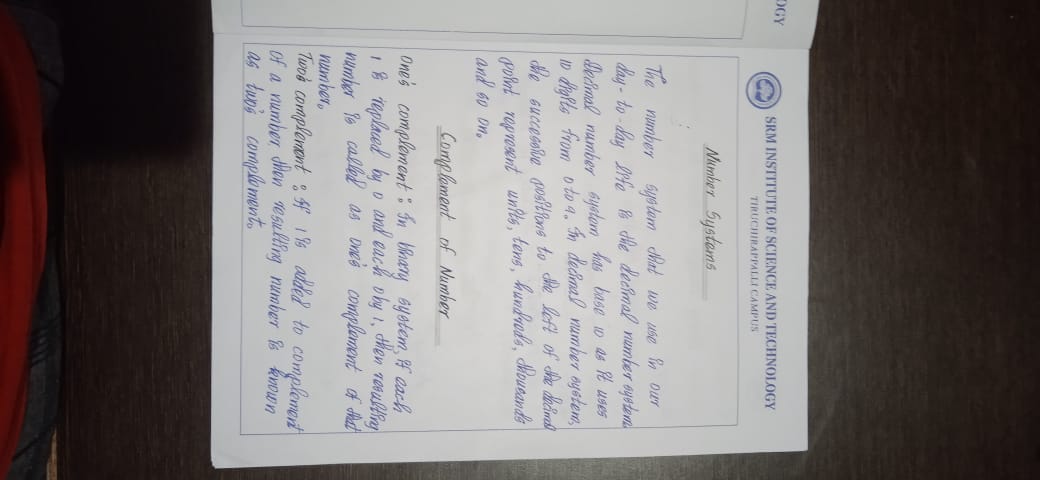 OGY
SRM INSTITUTE OF SCIENCE AND TECHNOLOGY
TIRUCHIRAPPALLI CAMPUS
Number Systems
The number system that we use in our
day-to-day life is the decimal number system.
Decimal number system has base 10 as it uses
10 digits from 0 to 9. In decimal number system,
the successive positions to the left of the decimal
point represent units, tens, hundreds, thousands
and so on.
Complement of Number
One's complement : In binary system, if each
1 is replaced by 0 and each 0 by 1, then resulting
number is called as one's complement of that
number.
Two's complement : If 1 is added to complement
of a number then resulting number is known
as two's complement.